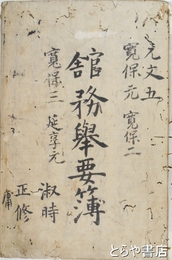 元文五
寛保元 寛保二
館務舉要簿
寛保三 延享元
淑時
正修
庸
とらや書店